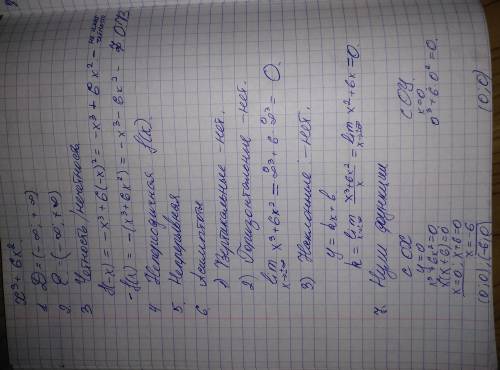 x³ + 6x²
1. D: (-∞; +∞)
2. E: (-∞; +∞)
3 Четность/нечетность
f(-x) = -x³ + 6(-x)² = -x³ + 6x² –
-f(x) = -(x³ + 6x²) = -x³ - 6x² –
4 Непериодичная f(x)
5. Непрерывная.
6. Асимптоты
1) Вертикальные – нет.
2) Горизонтальные – нет.
lim x→∞ x³ + 6x² = ∞³ + 6·∞³ = 0.
3) Наклонные – нет.
y = kx + b
k = lim x→∞ (x³ + 6x²)/x = lim x→∞ x² + 6x = 0.
7. Нули функции
с OX
y = 0
x³ + 6x² = 0
x²(x + 6) = 0
x = 0; x + 6 = 0
x = -6
(0; 0) (-6; 0)
с OY
x = 0
0³ + 6·0² = 0.
(0; 0)